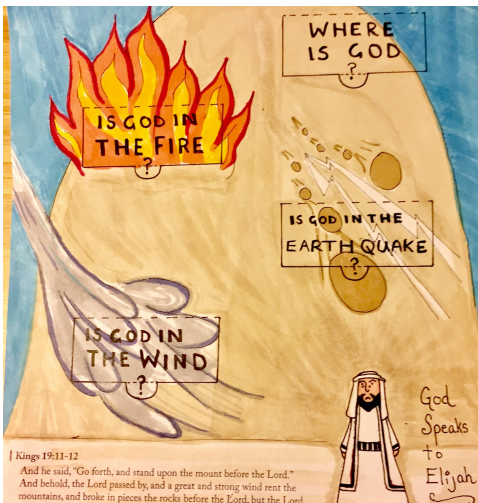 WHERE
IS GOD
?
IS GOD IN
THE FIRE
?
IS GOD IN THE
EARTHQUAKE
?
IS GOD IN
THE WIND
?
God
Speaks
to
Elijah
Kings 19:11-12
And he said, "Go forth, and stand upon the mount before the Lord."
And behold, the Lord passed by, and a great and strong wind rent the
mountains, and broke in pieces the rocks before the Lord, but the Lord